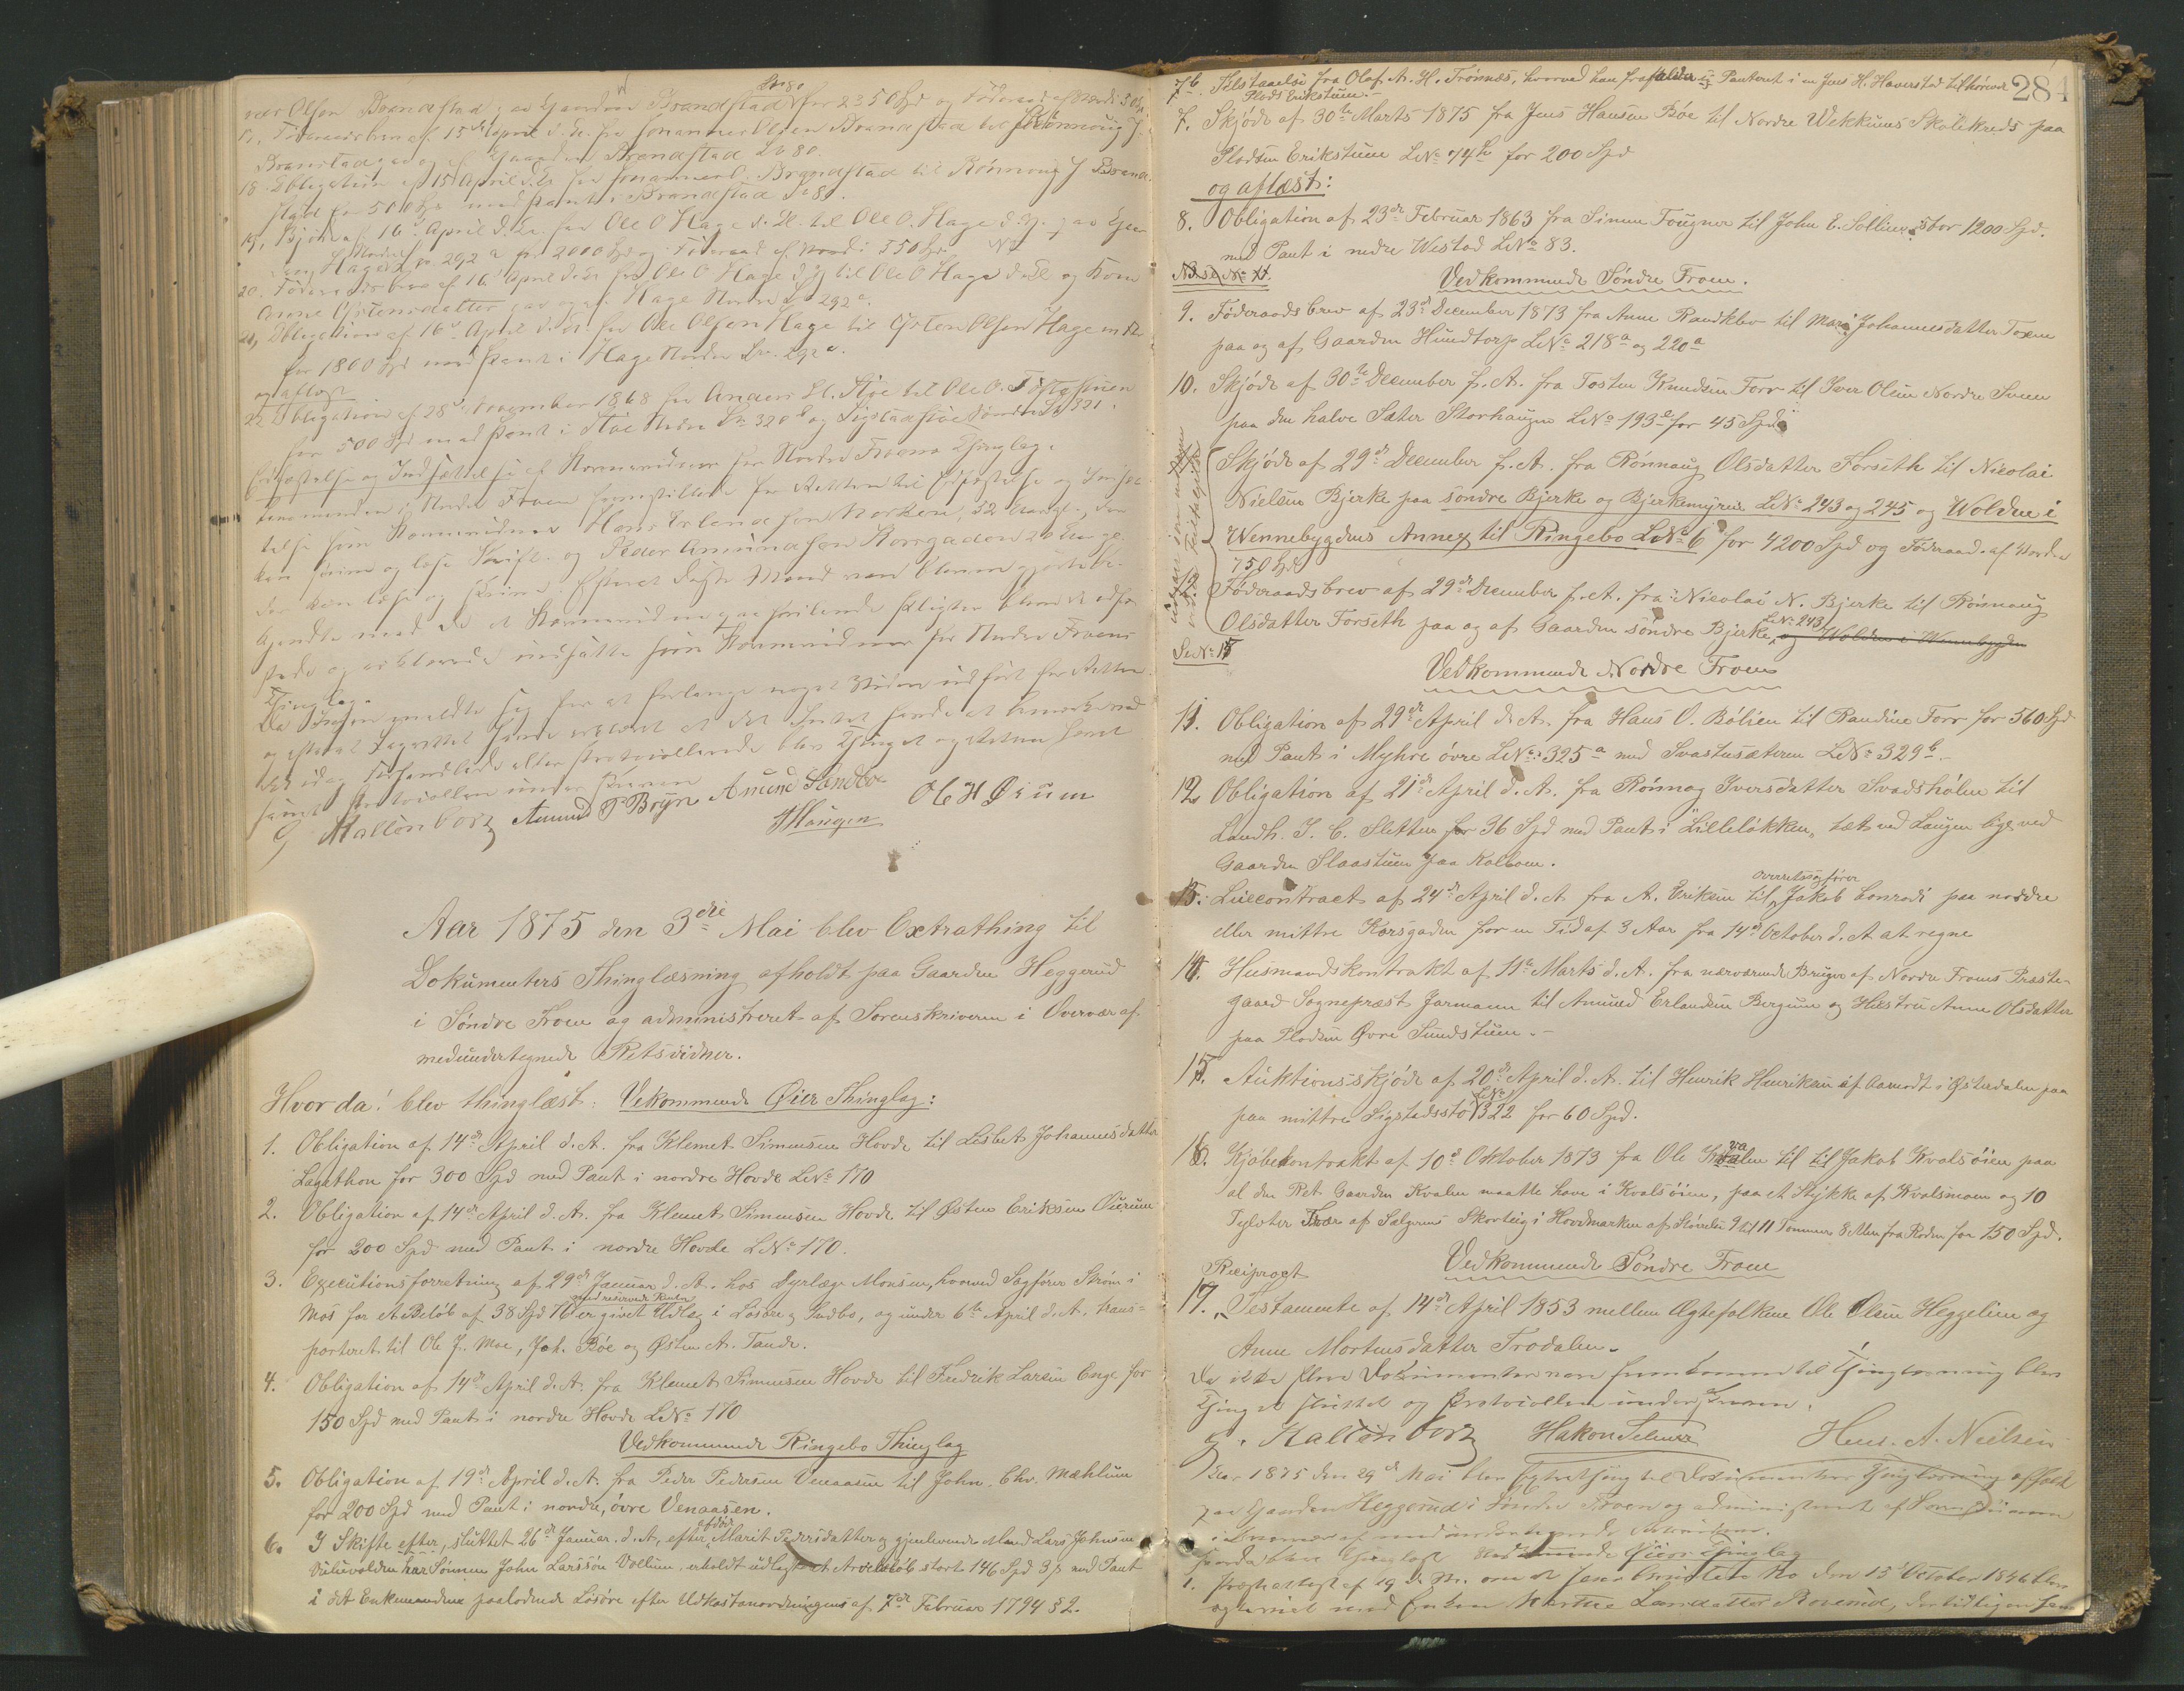 Olsen Brandstad; Brandstad for 2350 Spd og Föderaad af Værdi
Lº 80
17, af 15de April d. A. fra Johannes Olsen Brandstad til Rönnoug J.
Brandstad paa og af Gaarden Brandstad Lº 80.
18 Obligation af 15 April d. A. fra Johannes O. Brandstad til Rönnoug J Brand-
stad for 500 Spd med Pant i Brandstad Lº 80.
19, Skjöde af 16de April d. A. fra Ole O Hage d. Æ. til Ole O. Hage d. Y. paa
Hage Lº 292 a for 2000 Spd og Föderaad af Værdi: 550 Spd
20. Föderaadsbrev af 16de April d. A. fra Ole O Hage d. Y. til Ole O Hage d. Æ og Kone
Anne Østensdatter paa og af Hage Nordre Lº 292 a.
21, Obligation af 16de April d. A. fra Ole Olsen Hage til Østen Olsen Hage
for 1800 Spd med Pant i Hage Nordre Lº 292 a.
og aflæst
22 Obligation af 28de November 1868 fra Anders H. Stöe til Ole O.
for 500 Spd med Pant i Stöe Nedre Lº 320 b og Sigstadstöe Söndre Lº 321.
og Indsættelse af for Nordre Froens Thinglag.
i Nordre Froen fremstillede for Retten til og
telse som Hans Erlandsen Morken, 52 Aar gl., der
kan skrive og læse Skrift og Peder Amundsen Korsgaden 26 Aar gl.
der kan læse og skrive. Efterat disse Mænd vare blevne gjorte be-
kjendte med de et paahvilende Pligter
og indsatte som for Nordre Froens
Thinglag.
Da Ingen meldte sig for at forlange noget Videre indfört for Retten
og efterat Lagrettet havde erklæret at det Intet havde at bemærke ved
det idag forhandlede eller protocollerede blev Thinget og Retten hævet
samt Protocollen underskreven
G Kallenborg Amund P Bryn Amund Sandbo Ole H Øium
Haugen
Aar 1875 den 3die Mai blev Extrathing til
Dokumenters Thinglæsning afholdt paa Gaarden Heggerud
i Söndre Froen og administreret af Sorenskriveren i Overvær af
medundertegnede Retsvidner.
Hvorda! blev thinglæst: Vekommende Öier Thinglag:
1. Obligation af 14de April d. A. fra Klemet Simensen Hovde til Lisbet Johannesdatter
Lagethon for 300 Spd med Pant i nordre Hovde LNo 170
2. Obligation af 14de April d. A. fra Klemet Simensen Hovde til Østen Eriksen Öierum
for 200 Spd med Pant i nordre Hovde LNo 170.
3. Executionsforretning af 29de Januar d. A. hos Dyrlæge Monsen, hvorved Sagförer Ström i
med reserverede Renter
Mos for et Belöb af 38 Spd 16 er givet Udlæg i Lösöre & Indbo, og under 6te April d. A. trans=
porteret til Ole J. Moe, Joh. Böe og Østen A. Tande.
4. Obligation af 14de April d. A. fra Klemet Simensen Hovde til Fredrik Larsen Enge for
150 Spd med Pant i nordre Hovde LNo 170
Vedkommende Ringebo Thinglag
5. Obligation af 19de April d. A. fra Peder Pedersen Venaasen til John Chr. Mæhlum
for 200 Spd med Pant i nordre, övre Venaasen.
6. I Skifte efter, sluttet 26de Januar d. A., efter afdöde Marit Pedersdatter & gjenlevende Mand Lars Johnsen
har Sönnen John Larssön Vollum, erholdt udlagt et Arvebelöb stort 146 Spd 3 ß med Pant
i det Enkemanden paalodende Lösöre efter Udkastanordningens af 7de Februar 1794 § 2.
284
7 b. Tilstaaelse fra Olaf A. H. Trönnes, hvorved han frafalder sig Panteret i en Jens H. Haverstad tilhörende
Plads Erikstuen.
7. Skjöde af 30te Marts 1875 fra Jens Hansen Böe til Nordre Wekkums Skolekreds paa
Pladsen Erikstuen LNo 74 b for 200 Spd
og aflæst:
8. Obligation af 23de Februar 1863 fra Simen Fougner til John E. Sollien stor 1200 Spd.
med Pant i nedre Westad LNo 83.
Vedkommende Söndre Froen.
9. Föderaadsbrev af 23de December 1873 fra Anne Randklev til Mari Johannesdatter Toxen
paa og af Gaarden Hundtorp LNo 218a og 220a
10. Skjöde af 30te December f. A. fra Tosten Knudsen Forr til Iver Olsen Nordre Sven
paa den halve Sæter Storhaugen LNo 193 for 45 Spd
Skjöde af 29de December f. A. fra Rönnaug Olsdatter Forseth til Nicolai
Nielsen Bjerke paa söndre Bjerke og Bjerkemyren LNo 243 og 245 og Wolden i
Wennebygdens Annex til Ringebo LNo 6 for 4200 Spd og Föderaad af Værdi
750 Spd
12. Föderaadsbrev af 29de December f. A. fra Nicolai N. Bjerke til Rönnaug
Olsdatter Forseth paa og af Gaarden söndre Bjerke LNo 243, og Wolden i Wennebygden
Se No 15
Vedkommende Nordre Froen
11. Obligation af 29de April d. A. fra Hans O. Bölien til Randine Forr for 560 Spd
med Pant i Myhre övre LNo 325a med Svastusæteren LNo 329b.
12. Obligation af 21de April d. A. fra Rönnog Iversdatter Svadsholm til
Landh. I. C. Sletten for 36 Spd med Pant i "Lilleløkken" tæt ved Laugen lige ved
Gaarden Slaastuen paa Kolloen.
13. Leiecontract af 24de April d. A fra A. Eriksen til Overretssagförer Jakob Conradi paa nordre
eller mittre Korsgaden for en Tid af 3 Aar fra 14de October d. A at regne
14. Husmandskontrakt af 11te Marts d. A. fra nærværende Bruger af Nordre Froens Præste-
gaard Sognepræst Jarmann til Amund Erlandsen Bergum og Hustru Anne Olsdatter
paa Pladsen Övre Sundstuen.
15. Auktionsskjöde af 20de April d. A. til Henrik Henriksen af Aamodt i Østerdalen paa
paa mittre Sigstadsstö LNo 322 for 60 Spd.
16. Kjöbekontrakt af 10de Oktober 1873 fra Ole Kvalen til til Jakob Kvalsöien paa
al den Ret Gaarden Kvalen maatte have i Kvalsöien, paa et Stykke af Kvalsmoen og 10
Tylvter Trær af Sælgerens Skovteig i Hovdmarken af Störrelse 9 til 11 Tommer 8 Alen fra Roden for 150 Spd.
Vedkommende Söndre Froen
Reciproct
17. Testamente af 14de April 1853 mellem Ægtefolkene Ole Olsen Heggelien og
Anne Mortensdatter Frodalen.
Da ikke flere Dokumenter vare fremkomne til Thinglæsning blev
Thinget sluttet og Protocollen underskreven.
G. Kallenborg Hakon Hans. A. Nielsen
Aar 1875 den 29de Mai blev Extrathing til Dokumenters Thinglæsning afholdt
paa Gaarden Heggerud i Söndre Froen og administreret af Sorenskriveren
i Overvær af medundertegnede Retsvidner.
Hvorda blev thinglæst Vedkommende Öier Thinglag
1. af 19 d. M. om at Jens den 15de October 1846 blev
med Enken Marthe Larsdatter Rovenud,